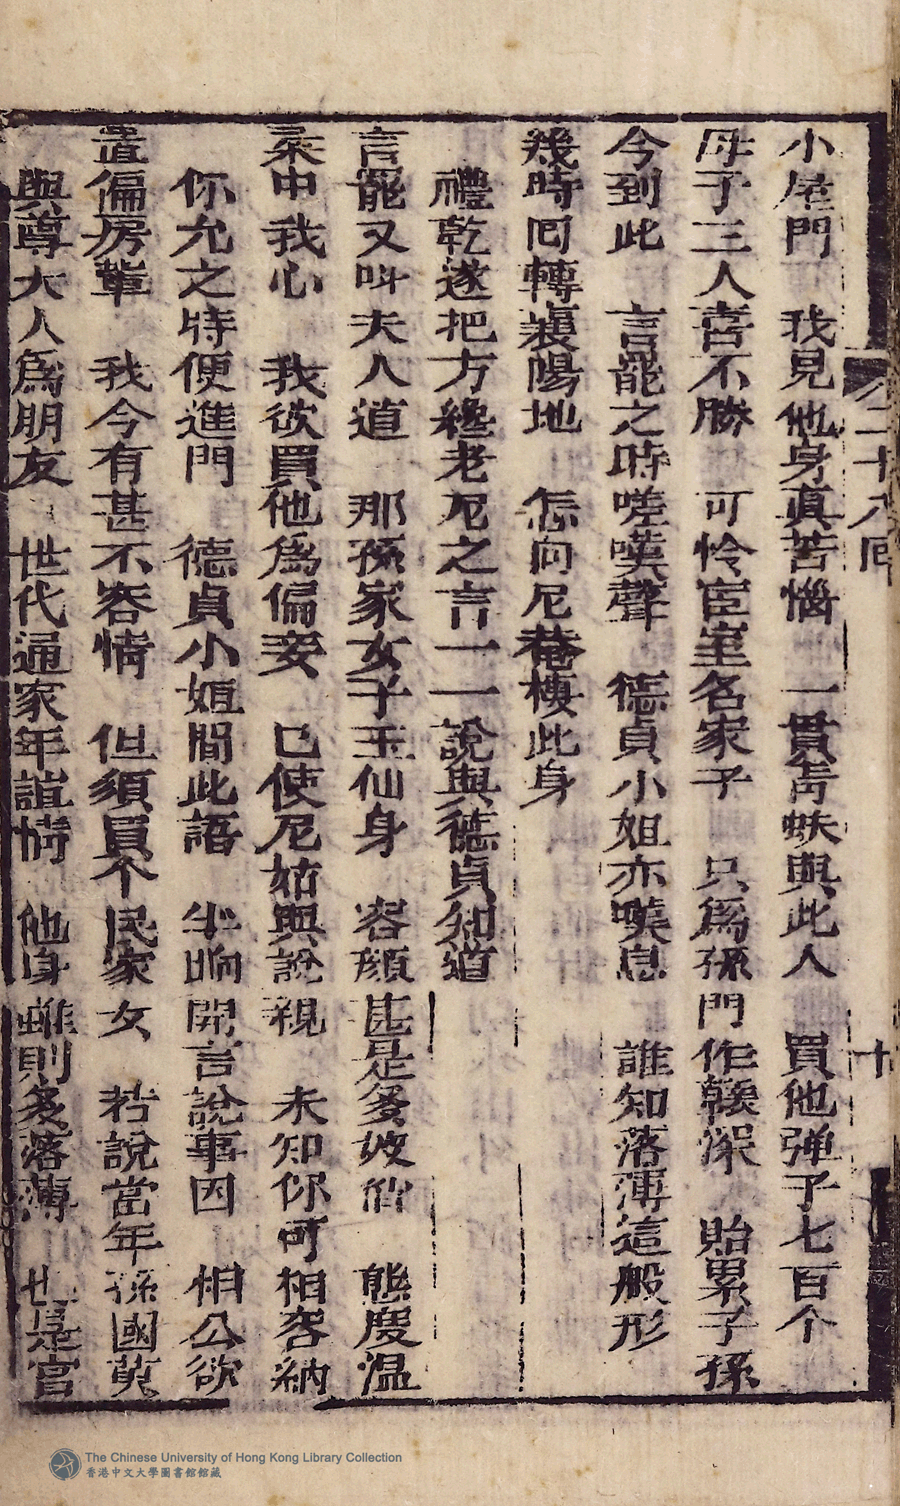 二十八回 十
小屋門 我見他身眞苦惱 一貫靑蚨與此人 買他弹子七百个
母子三人喜不勝 可怜宦室名家子 只為孫門作韃深 貽累子孫
今到此 言罷之時嗟嘆聲 德貞小姐亦嘆息 誰知落薄這般形
幾時囘轉襄陽地 怎向尼菴棲此身
禮乾遂把方纔老尼之言一一說與德貞知道
言罷又呌夫人道 那孫家女子玉仙身 容顔甚是多姣俏 態度温
柔中我心 我欲買他爲偏妾 已使尼姑與說親 未知你可相容納
你允之時便進門 德貞小姐聞此語 半晌開言說事因 相公欲
置偏房輩 我今有甚不容情 但須買个民家女 若說當年孫國英
與尊大人爲朋友 世代通家年誼情 他身雖則多落薄 也是官
The Chinese University of Hong Kong Library Collection
香港中文大學圖書館館藏